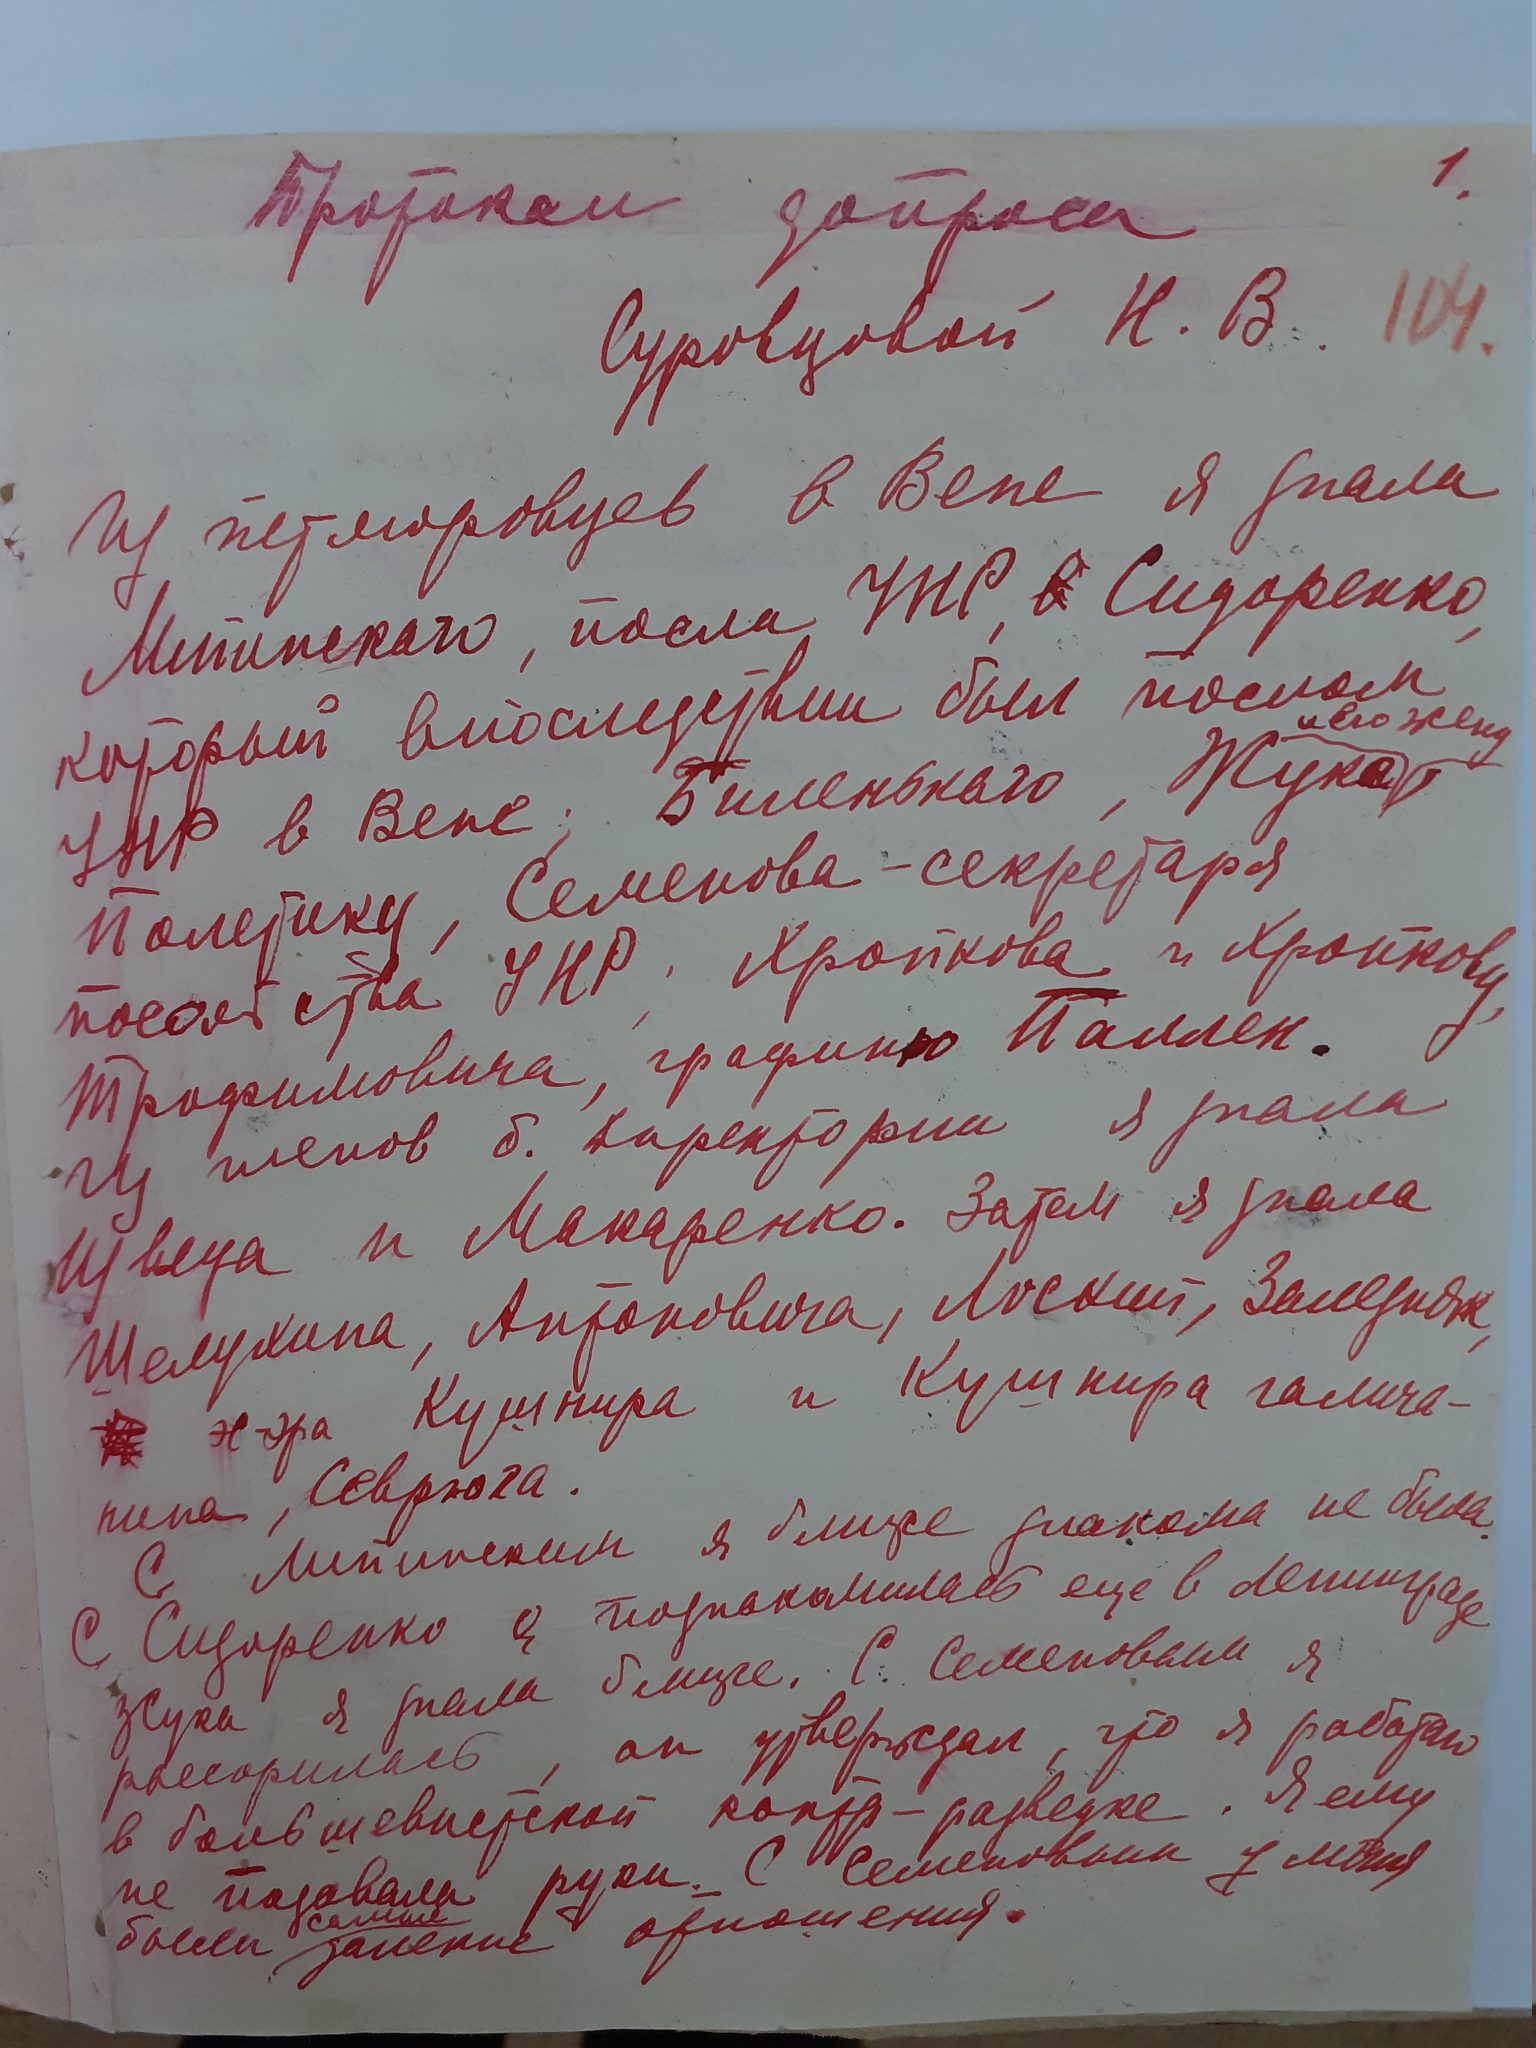 1.
Протокол допроса
Суровцовой Н. В.
104.
Из петлюровцев в Вене я знала
Липинского, посла УНР, Сидоренко,
который впоследствии был послом
и его жену
УНР в Вене, Биленького, Жука,
Полетику, Семенова - секретаря
посольства УНР, Хропкова и Хропкову,
Трофимовича, графиню Паллен.
Из членов б. Директории я знала
Швеца и Макаренко. Затем я знала
Шелухина, Антоновича, Лоский, Залезняк,
эс-эра Кушнира и Кушнира галича-
нина, Севрюка.
С Липинским я ближе знакома не была.
С Сидоренко я познакомилась еще в Ленинграде
Жука я знала ближе. С Семеновым я
рассорилась, он утверждал, что я работаю
в большевистской контр-разведке. Я ему
не подавала руки. С Семеновым у меня
самые
были далекие отношения.